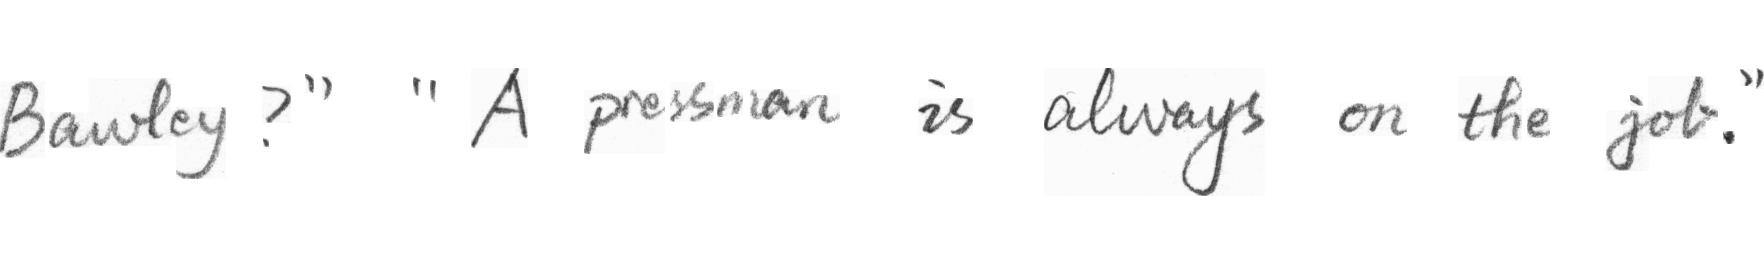 Bawley?" "A pressman is always on the job."